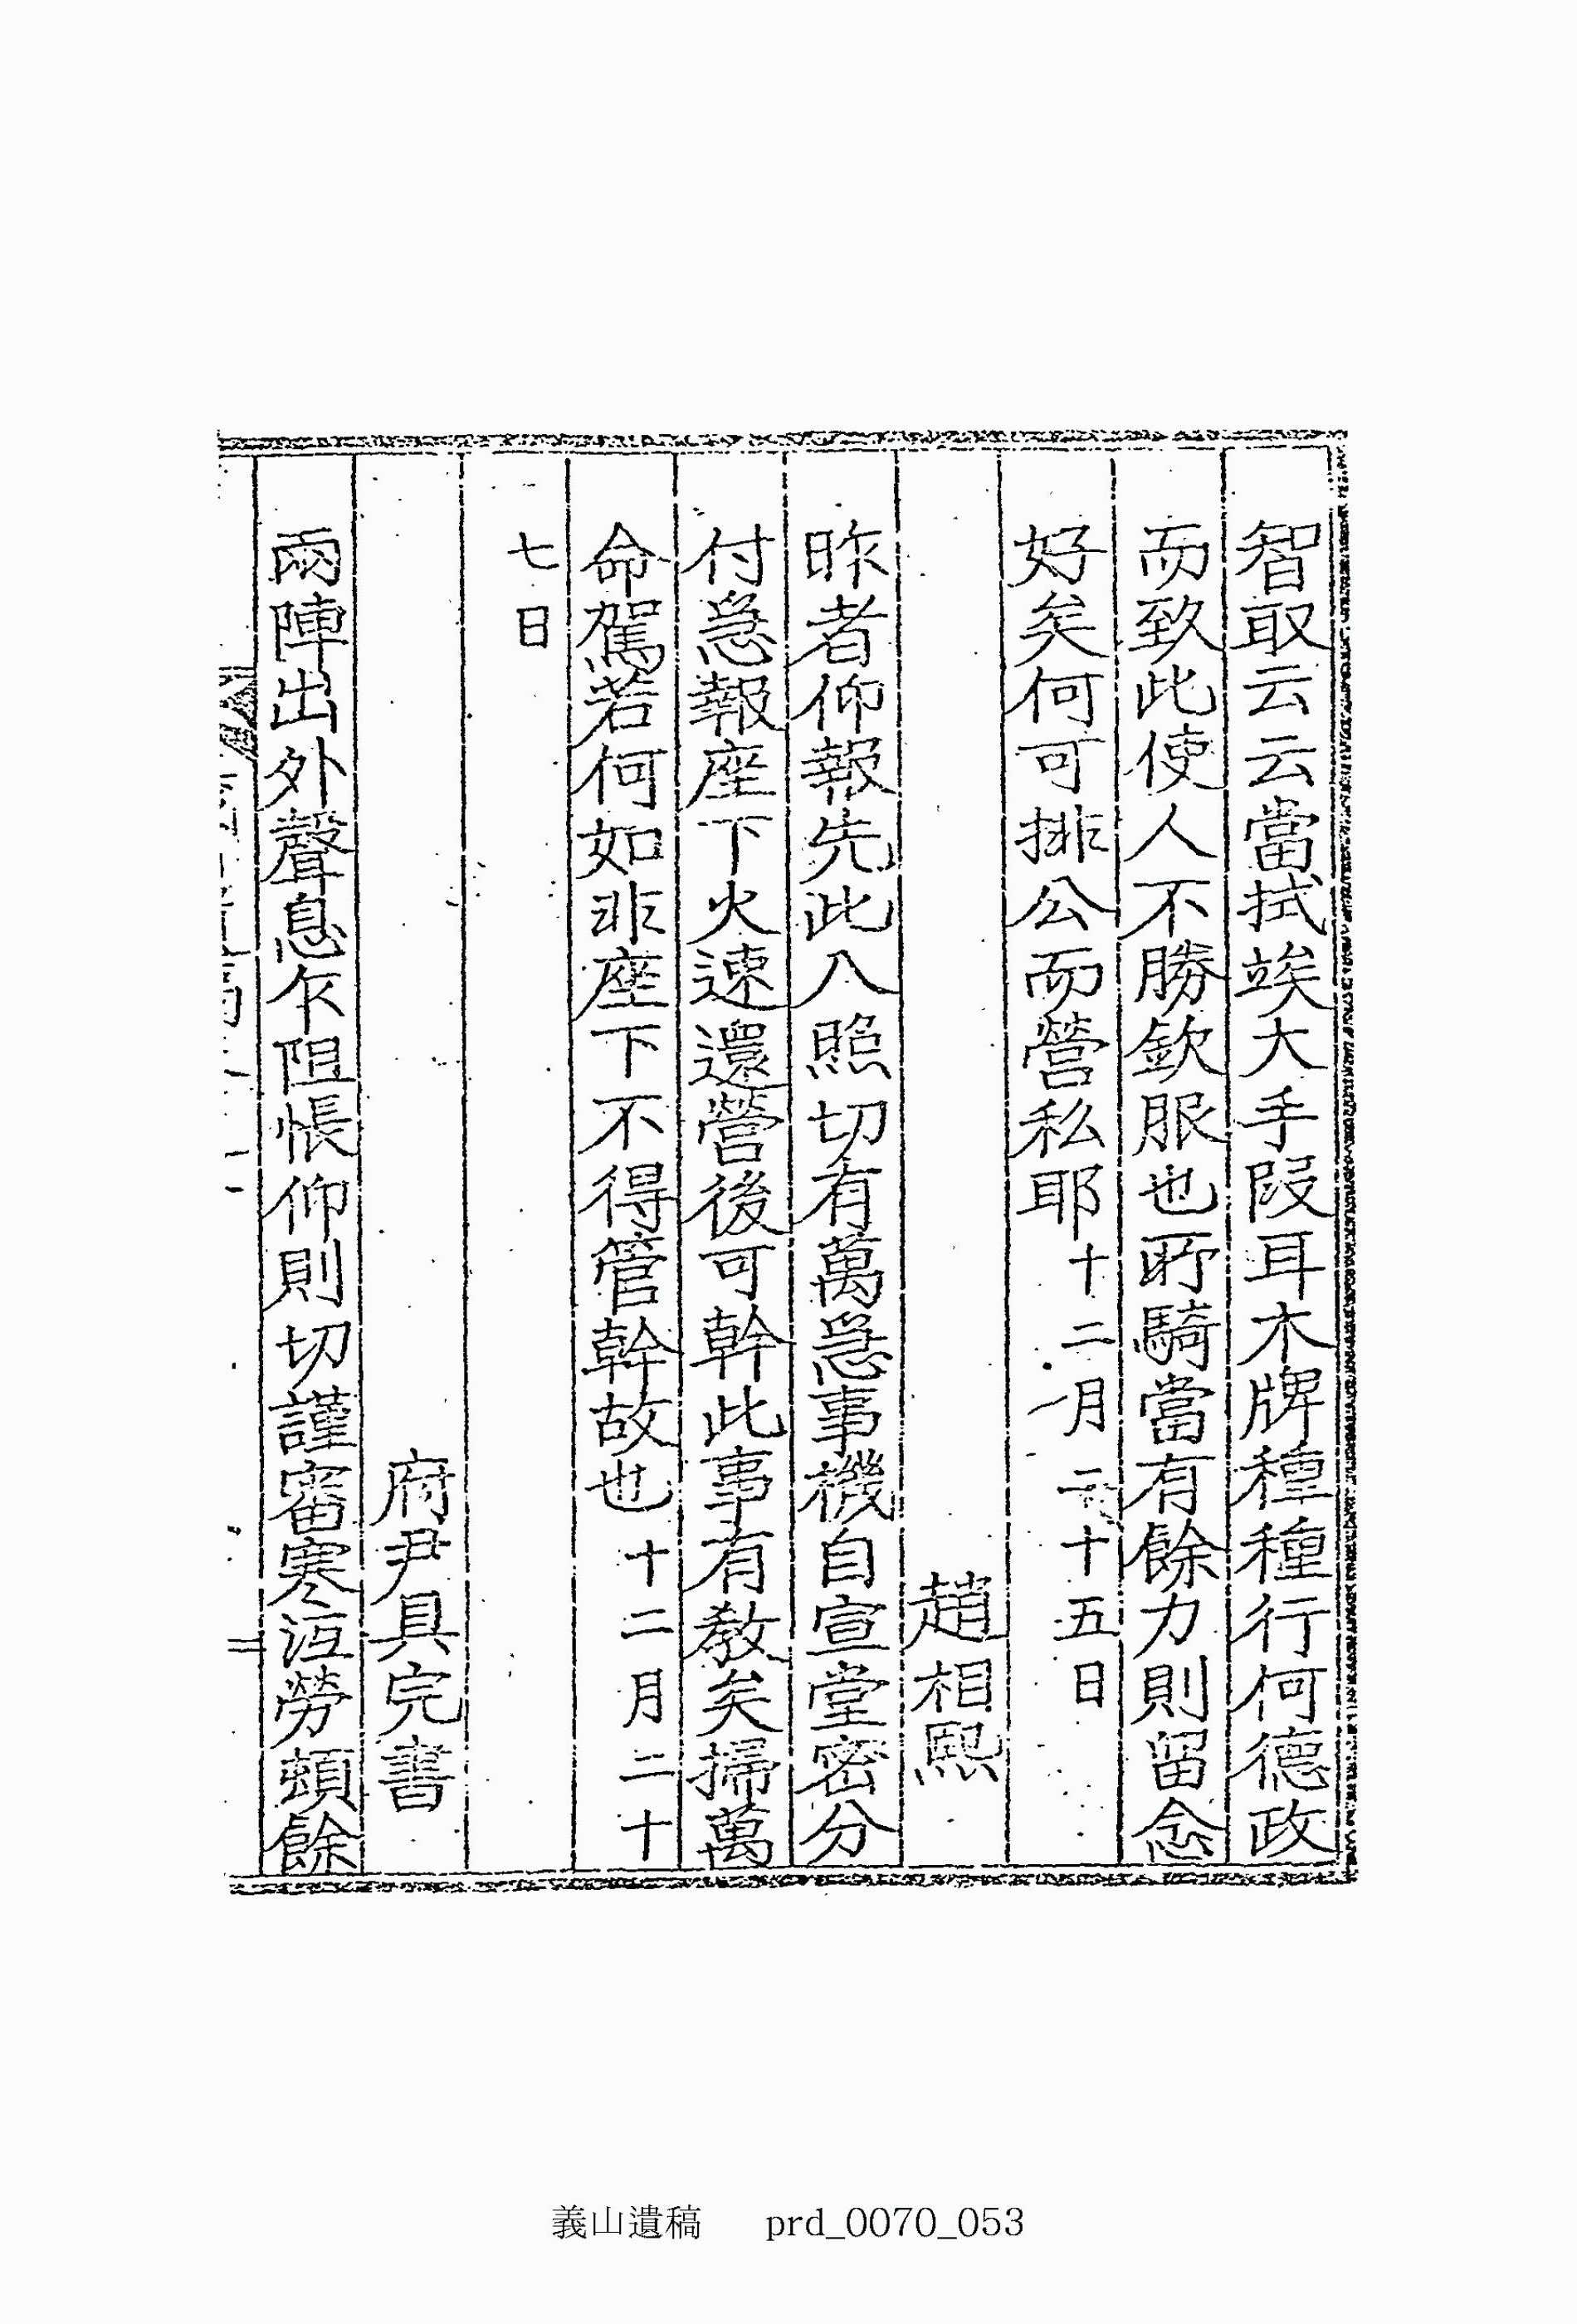 智取云云當拭竢大手段耳木牌種種行何德政
而致此使人不勝欽服也所騎當有餘力則留念
好矣何可排公而營私耶十二月二十五日
趙相熙
昨者仰報先此入照切有萬急事機自宣堂密分
付急報座下火速還營後可幹此事有教矣掃萬
命駕若何如非座下不得管幹故也十二月二十
七日
府尹具完書
兩陣出外聲息乍阻悵仰則切謹審寒沍勞頓餘
義山遺稿 prd_0070_053